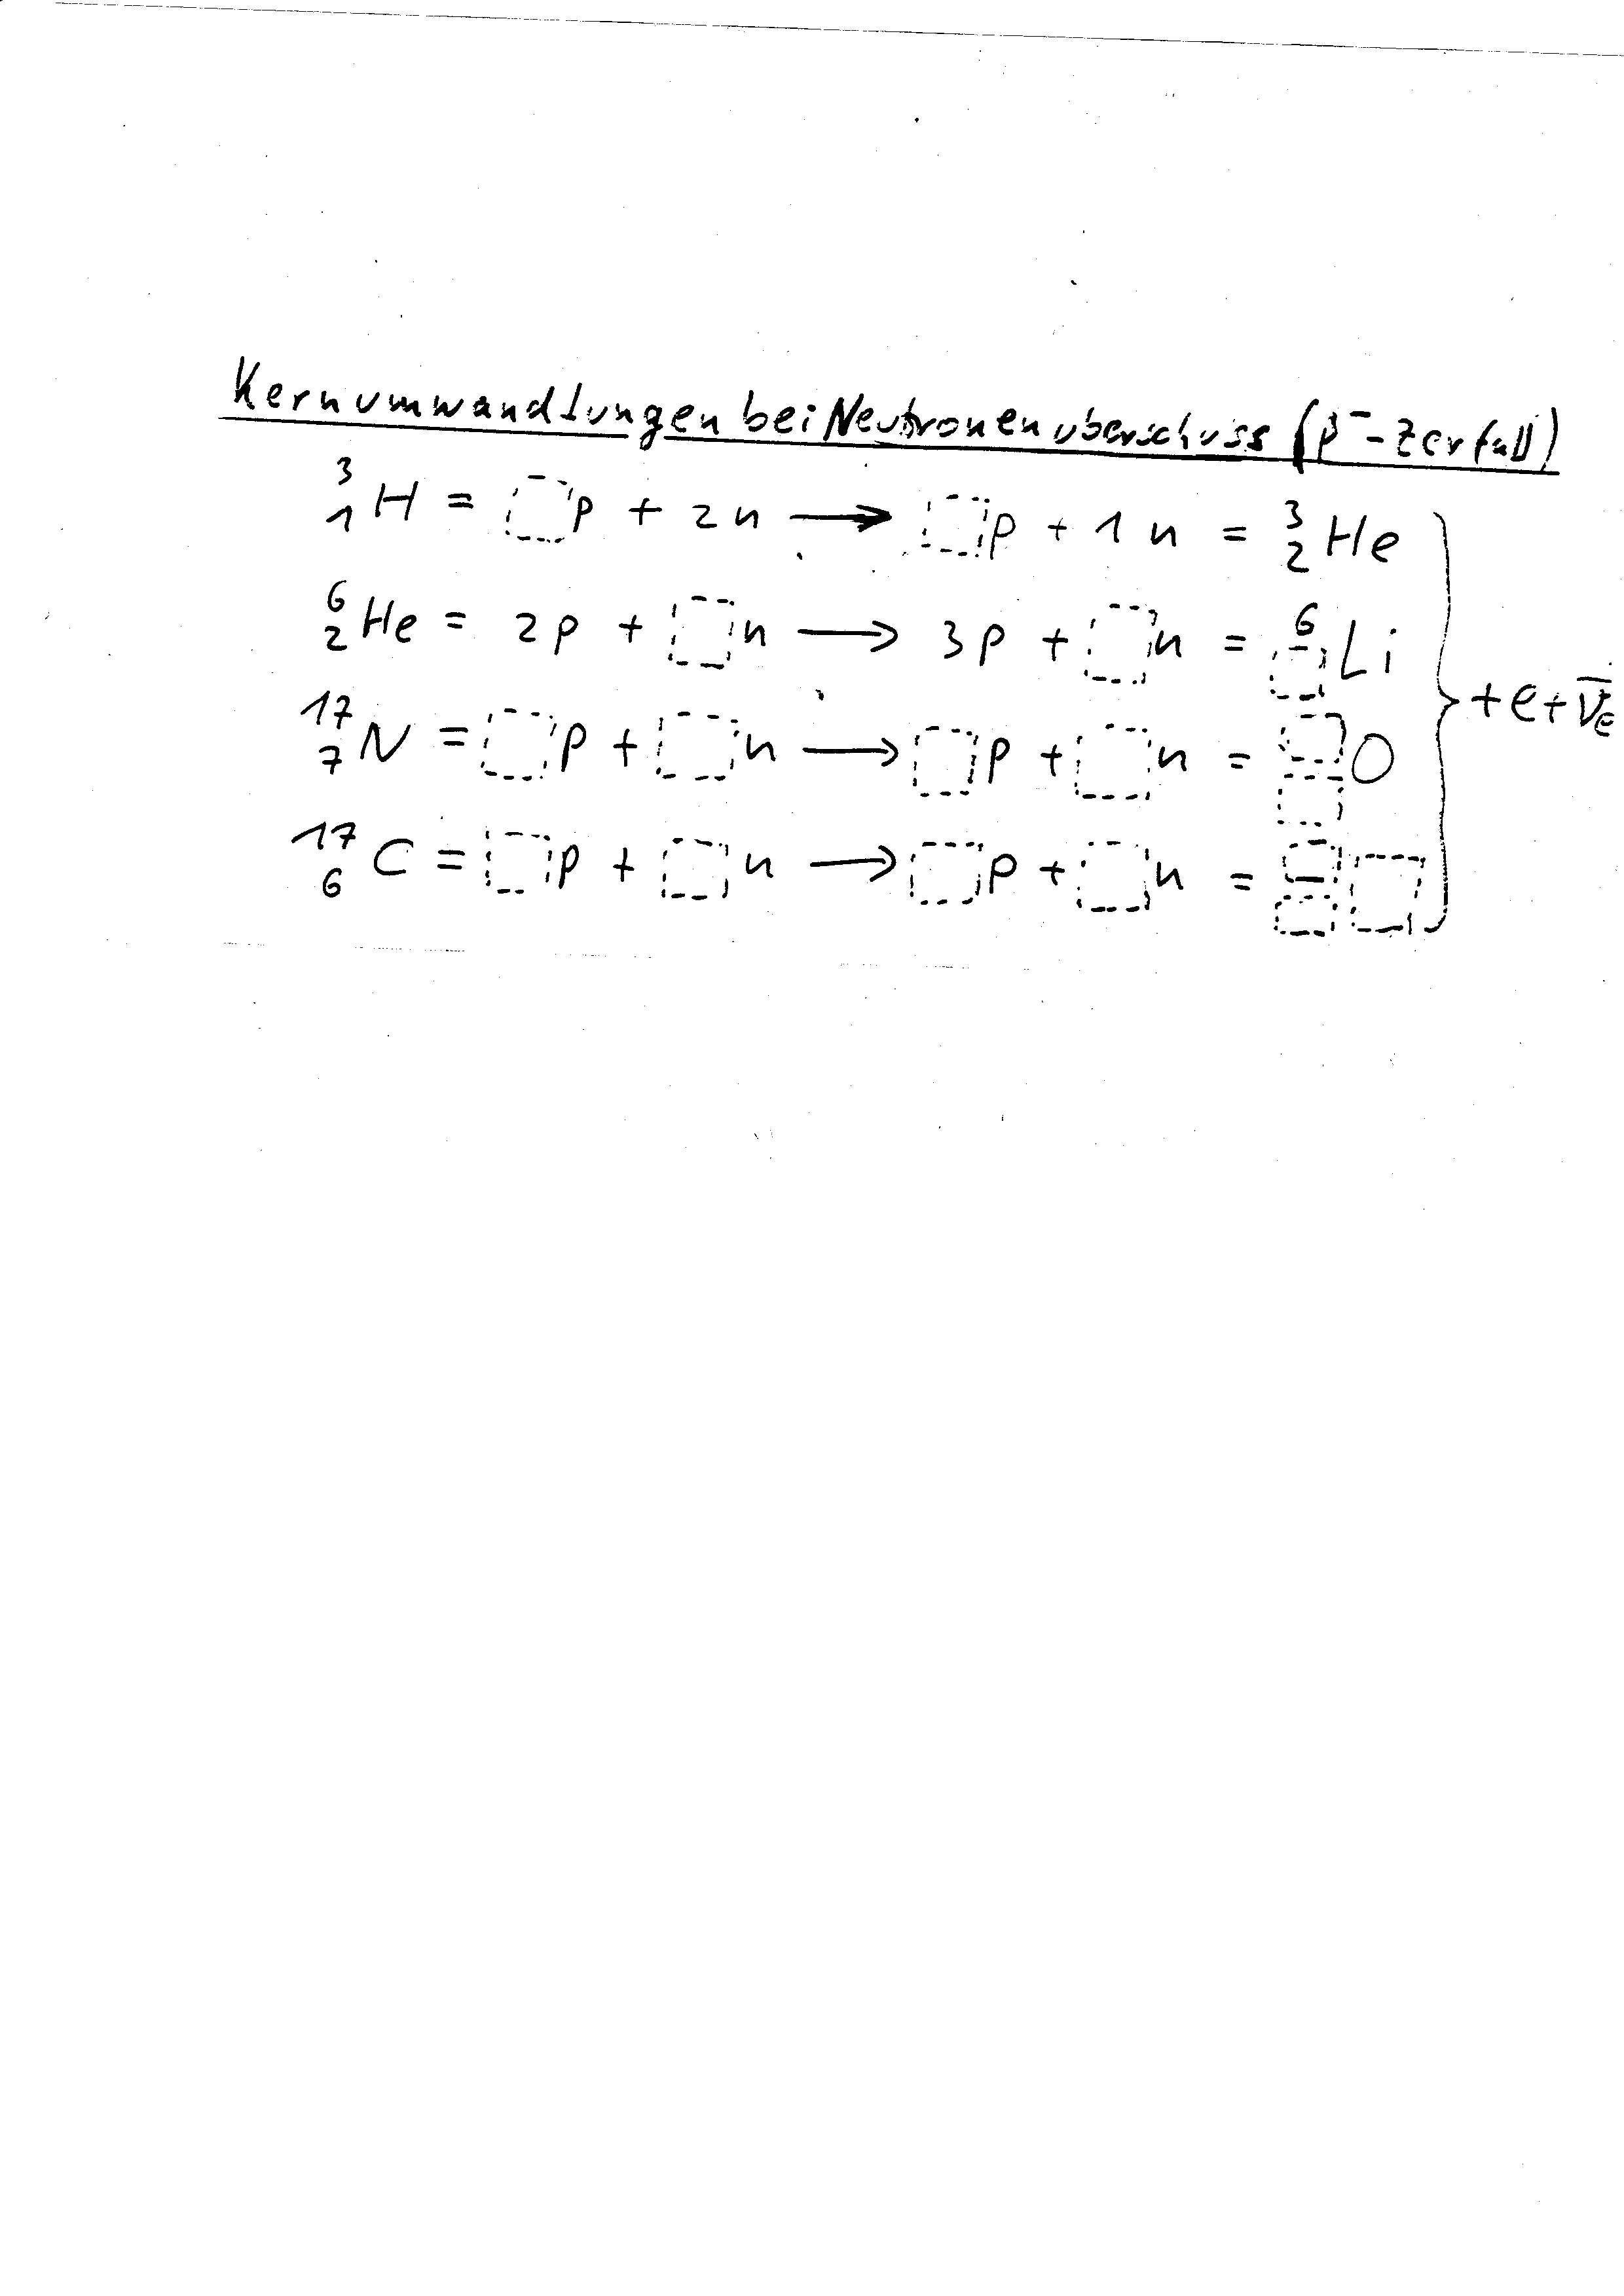 Kernumwandlungen bei Neutronenüberschuss (β⁻-Zerfall)
³₁H = □p + 2n ⟶ □p + 1n = ³₂He
⁶₂He = 2p + □n ⟶ 3p + □n = ⁶□Li
¹⁷₇N = □p + □n ⟶ □p + □n = □□O
¹⁷₆C = □p + □n ⟶ □p + □n = □□□
} + e + ν̅ₑ